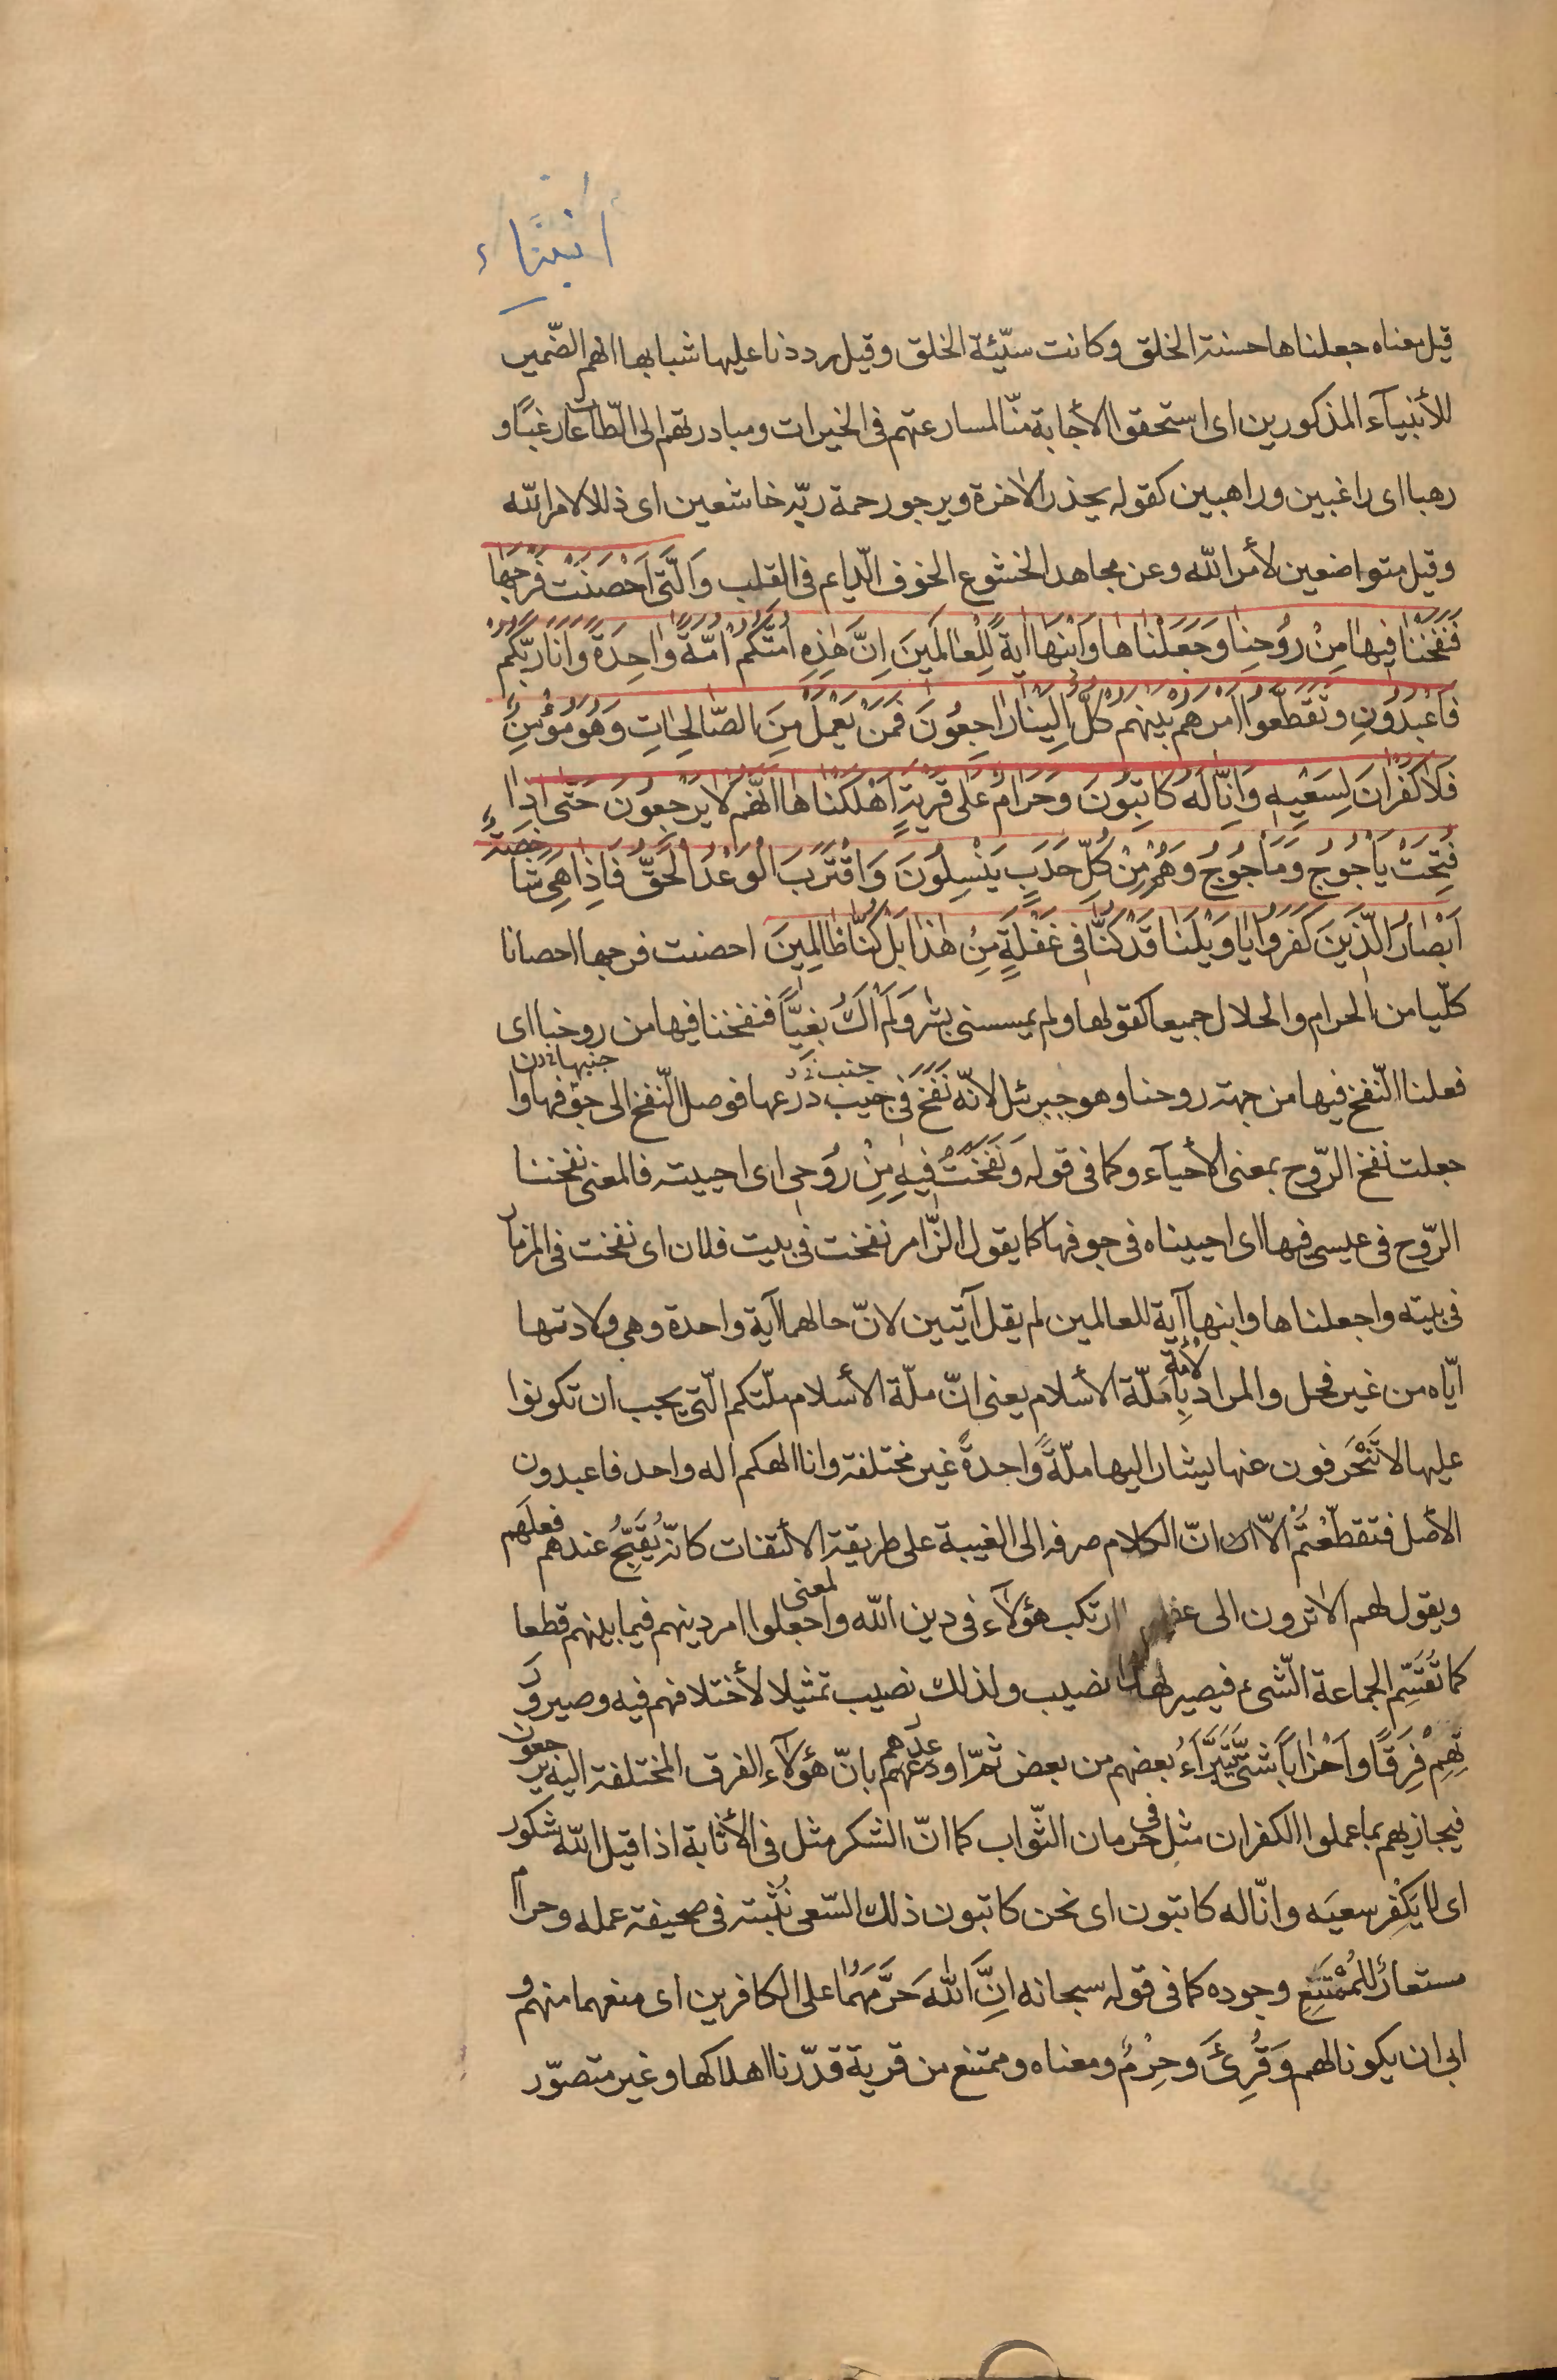 أنبیاء
قيل معناه جعلناها حسنة الخلق وكانت سيّئة الخلق وقيل رددنا عليها شبابها انهم الضّمير
للأنبياء المذكورين اى استحقوا الأجابة منّا لمسارعتهم فى الخيرات ومبادرتهم الى الطّاعات رغبًا و
رهبا اى راغبين وراهبين كقوله يحذر الاخرة ويرجو رحمة ربّه خاشعين اى ذللا لامر الله
وقيل متواضعين لأمر الله وعن مجاهد الخشوع الخوف الدّايم فى القلب وَالَّتى اَحْصَنَتْ فَرْجَهٰا
فَنَفَخْنٰا فيهٰا مِنْ رُوحِنٰا وَجَعَلْنٰاهٰا وَابْنَهٰا اٰيَةً لِلْعٰالَمينَ اِنَّ هٰذِهِ اُمَّتُكُمْ اُمَّةً وٰاحِدَةً وَاَنَا رَبُّكُمْ
فَاعْبُدُونِ وَتَقَطَّعُوا اَمْرَهُمْ بَيْنَهُمْ كُلٌّ اِلَيْنٰا رٰاجِعُونَ فَمَنْ يَعْمَلْ مِنَ الصّٰالِحٰاتِ وَهُوَ مُؤْمِنٌ
فَلٰا كُفْرٰانَ لِسَعْيِهِ وَاِنّٰا لَهُ كٰاتِبُونَ وَحَرٰامٌ عَلٰى قَرْيَةٍ اَهْلَكْنٰاهٰا اَنَّهُمْ لٰا يَرْجِعُونَ حَتّٰى اِذٰا
فُتِحَتْ يَأْجُوجُ وَمَأْجُوجُ وَهُمْ مِنْ كُلِّ حَدَبٍ يَنْسِلُونَ وَاقْتَرَبَ الْوَعْدُ الْحَقُّ فَاِذٰا هِىَ شٰاخِصَةٌ
اَبْصٰارُ الَّذينَ كَفَرُوا يٰا وَيْلَنٰا قَدْ كُنّٰا فى غَفْلَةٍ مِنْ هٰذٰا بَلْ كُنّٰا ظٰالِمينَ احصنت فرجها احصانا
كلّيا من الحرام والحلال جميعا كقولها ولم يمسسنى بشر وَلَمْ اَكُ بَغيًّا فنفخنا فيها من روحنا اى
فعلنا النّفخ فيها من جهة روحنا وهو جبرئل لانّه نَفَخَ فى جيب درعها فوصل النّفخ الى جوفها وا
جعلت نفخ الرّوح بمعنى الأحياء وكما فى قوله وَنَفَخْتُ فيهِ مِنْ رُوحى اى احييته فالمعنى نفخنا
الرّوح فى عيسى فيها اى احييناه فى جوفها كما يقول الزّامر نفخت فى بيت فلان اى نفخت فى المزمار
فى بيته واجعلناها وابنها آية للعالمين لم يقل آيتين لانّ حالهما آية واحدة وهى ولادتها
ايّاه من غير فحل والمراد بِالأمة مَلّة الأسلام يعنى انّ ملّة الأسلام ملّتكم الّتى يجب ان تكونوا
عليها لا تَنْحَرِفون عنها يشار اليها ملّةً وٰاحدةً غير مختلفة وانا الهكم اله واحد فاعبدون
الأصل فتقطّعْتُم الّا انّ الكلام صرفه الى الغيبة على طريقة الالتفات كانّه يُقَبِّحُ عندهم فعلَهم
ويقول لهم الا ترون الى ارتكب هؤلاء فى دين الله والمعنى جعلوا امر دينهم فيما بينهم قطعا
كما تُقَسِّم الجماعة الشّىء فيصير لهذا نصيب ولذلك نصيب تمثيلا لأختلافهم فيه وصيرورَ
تِهِمْ فِرَقًا واَحْزابًا شتّى يَتَبَرَّأءُ بعضهم من بعض ثمّ اوعدهم بانّ هؤلآء الفرق المختلفة اليه يرجعون
فيجازيهم بما عملوا الكفران مثل فى حرمان الثّواب كما انّ الشكر مثل فى الأثابة اذا قيل الله شكور
اى لا يَكْفِر سعيَه وانّا له كاتبون اى نحن كاتبون ذلك السّعى نُثْبِته فى صحيفة عمله وحرام
مستعار للمُمْتَنِعِ وجوده كما فى قوله سبحانه اِنَّ اللهَ حَرَّمَهُمٰا على الكافرين اى منعهما منهم و
ابى ان يكونا لهم وَقُرِئَ وحِرْمٌ ومعناه وممتنع من قرية قدّرنا اهلاكها وغير متصوّر